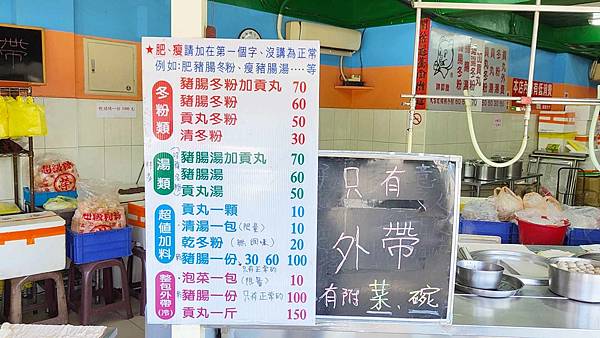 ★肥、瘦請加在第一個字、沒講為正常
例如:肥豬腸冬粉、瘦豬腸湯‥‥等
冬粉類
豬腸冬粉加貢丸 70
豬腸冬粉 60
貢丸冬粉 50
清冬粉 30
湯類
豬腸湯加貢丸 70
豬腸湯 60
貢丸湯 50
超值加料
貢丸一顆 10
清湯一包(限量) 10
乾冬粉(無調味) 20
豬腸一份、30 60 100
只有正常的
整包外帶(冷)
泡菜一包(限舊) 10
豬腸一份 只有正常的 100
貢丸一斤 150
只有
外帶
有附菜、碗
帶
本店